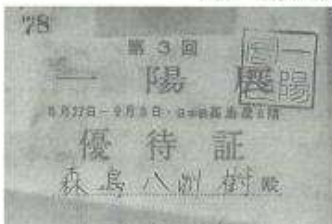 78
第3回
一陽展
8月27日—9月8日・日本橋高島屋8階
優待証
森島八洲樹殿
一陽